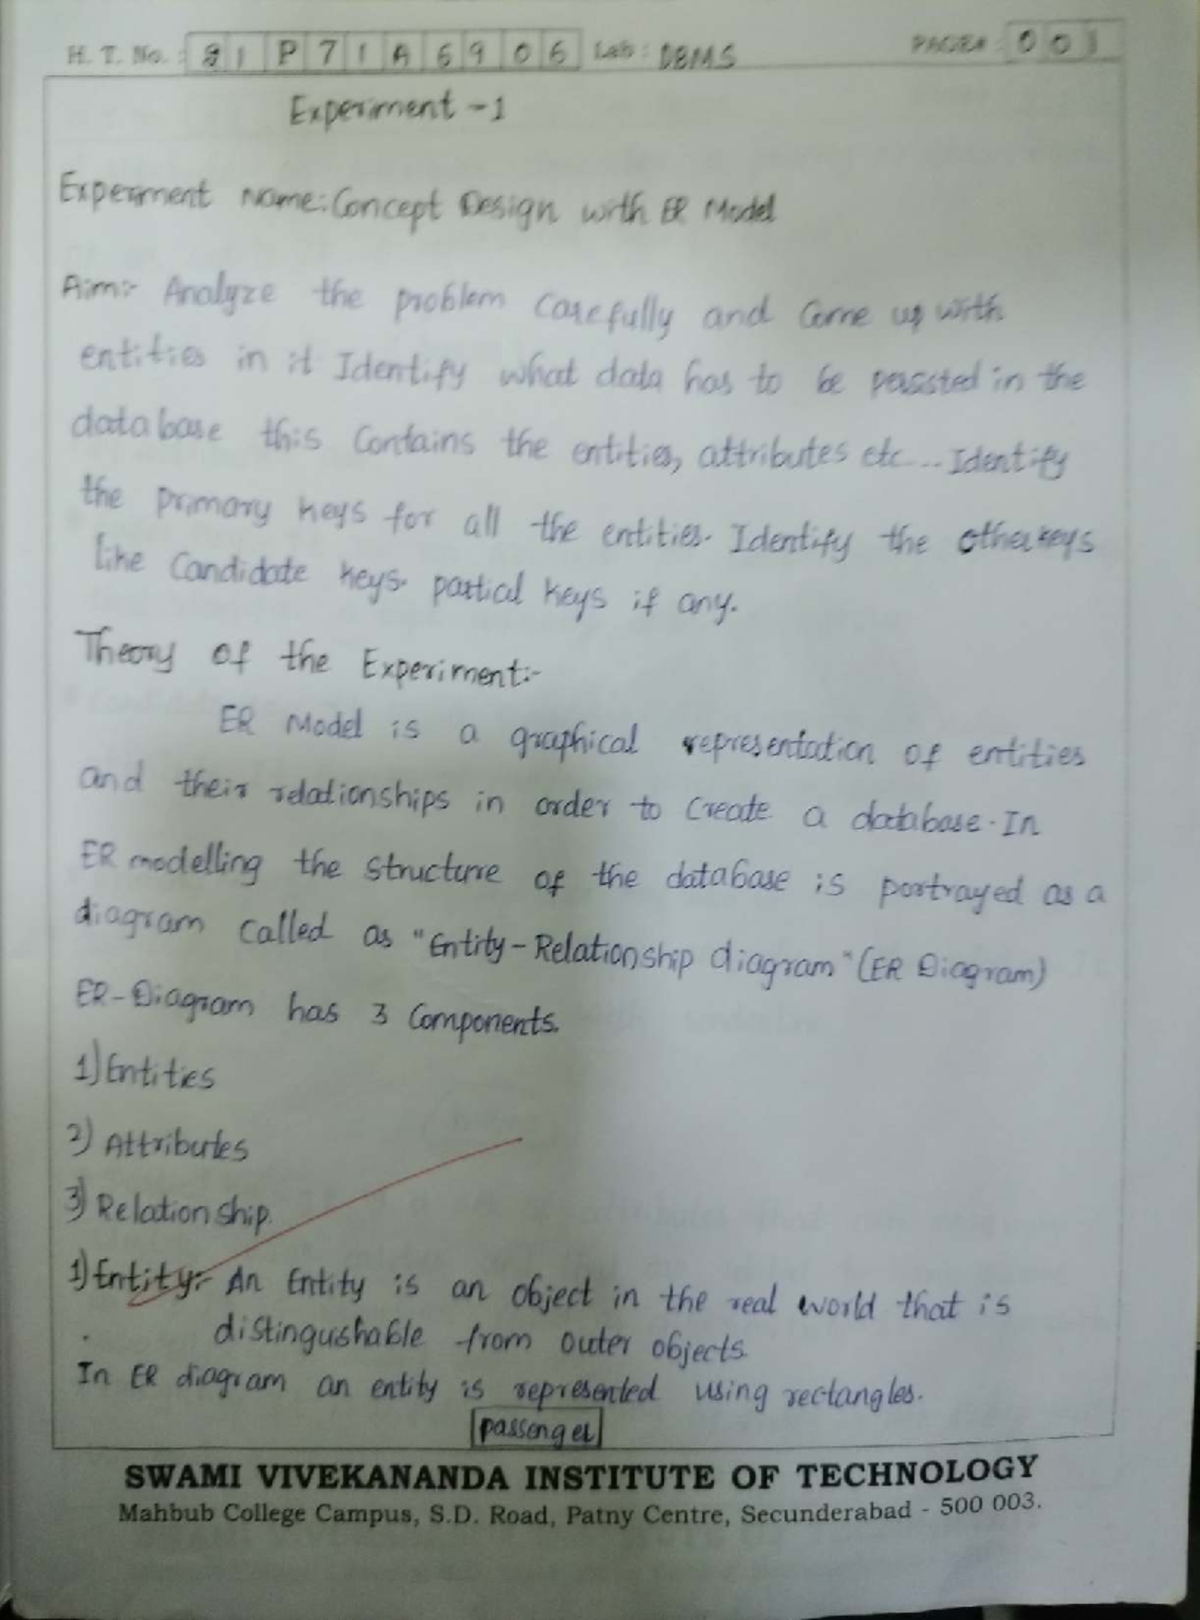 H. T. No. : 21P71A6906 Lab : DBMS PAGE# : 001
Experiment - 1
Experiment Name: Concept Design with ER Model
Aim:- Analyze the problem carefully and Come up with
entities in it Identify what data has to be persisted in the
database this Contains the entities, attributes etc... Identify
the primary keys for all the entities. Identify the other keys
like Candidate keys. partial keys if any.
Theory of the Experiment:-
ER Model is a graphical representation of entities
and their relationships in order to Create a database. In
ER modelling the structure of the database is portrayed as a
diagram called as "Entity-Relationship diagram" (ER Diagram)
ER-Diagram has 3 Components.
1) Entities
2) Attributes
3) Relationship.
1) Entity:- An Entity is an object in the real world that is
distingushable from outer objects.
In ER diagram an entity is represented using rectangles.
passenger
SWAMI VIVEKANANDA INSTITUTE OF TECHNOLOGY
Mahbub College Campus, S.D. Road, Patny Centre, Secunderabad - 500 003.